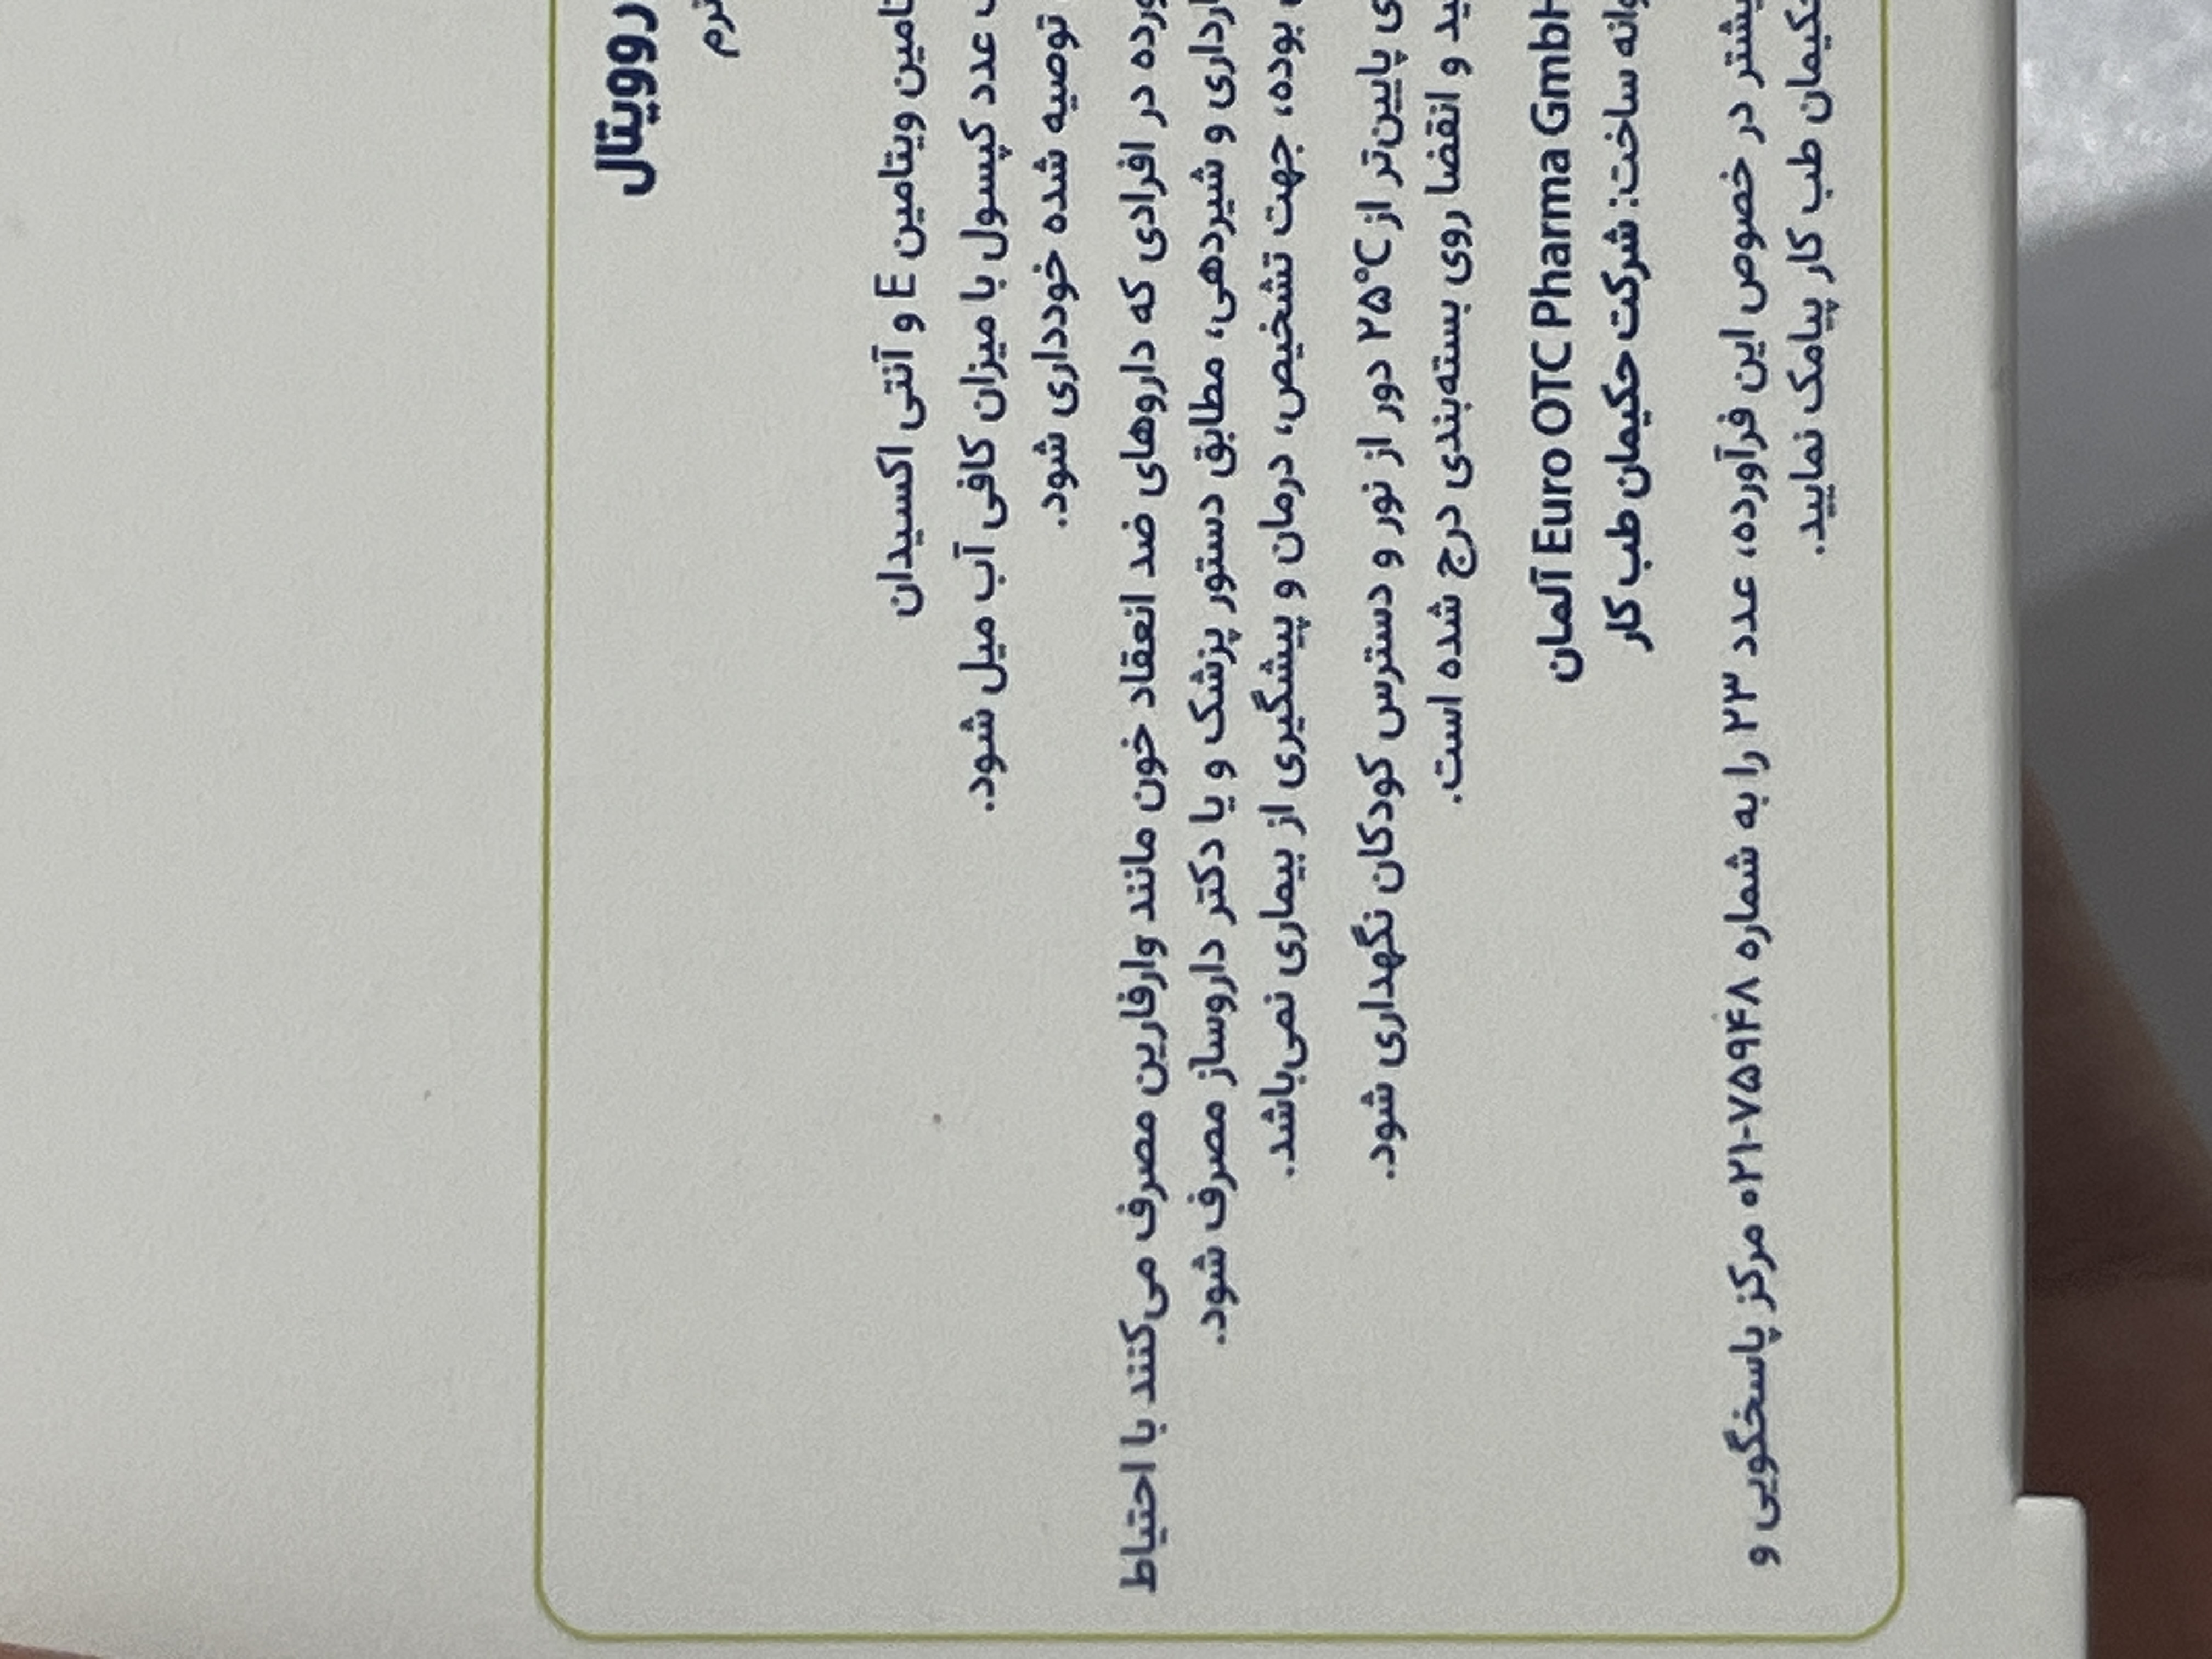 روویتال
ویتامین E و آنتی اکسیدان
عدد کپسول با میزان کافی آب میل شود.
توصیه شده خودداری شود.
در افرادی که داروهای ضد انعقاد خون مانند وارفارین مصرف می‌کنند با احتیاط
و شیردهی، مطابق دستور پزشک و یا دکتر داروساز مصرف شود.
بوده، جهت تشخیص، درمان و پیشگیری از بیماری نمی‌باشد.
پایین‌تر از ۲۵°C دور از نور و دسترس کودکان نگهداری شود.
و انقضا روی بسته‌بندی درج شده است.
Euro OTC Pharma GmbH آلمان
ساخت: شرکت حکیمان طب کار
در خصوص این فرآورده، عدد ۲۳ را به شماره ۷۵۹۴۸-۰۲۱ مرکز پاسخگویی و
حکیمان طب کار پیامک نمایید.